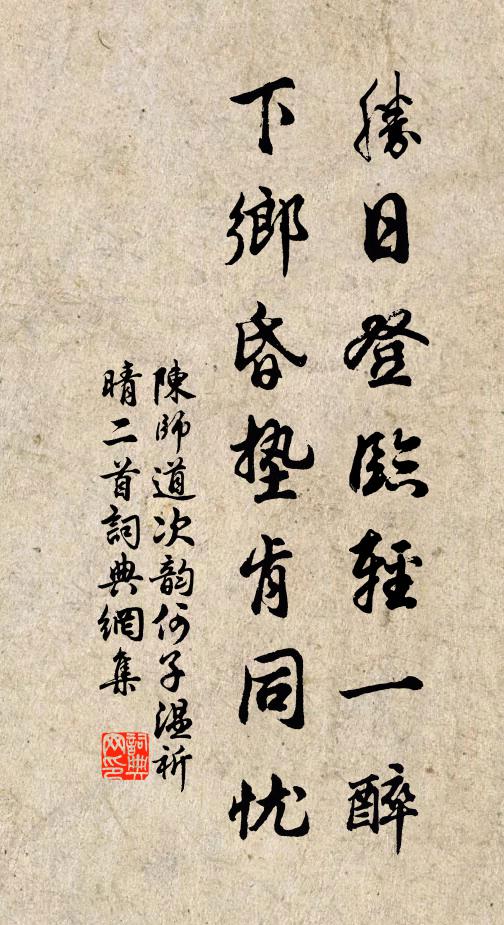 勝日登臨輕一醉
下鄉昏墊肯同忧
陳師道次韵何子温祈
晴二首詞典網集
詞典
网印